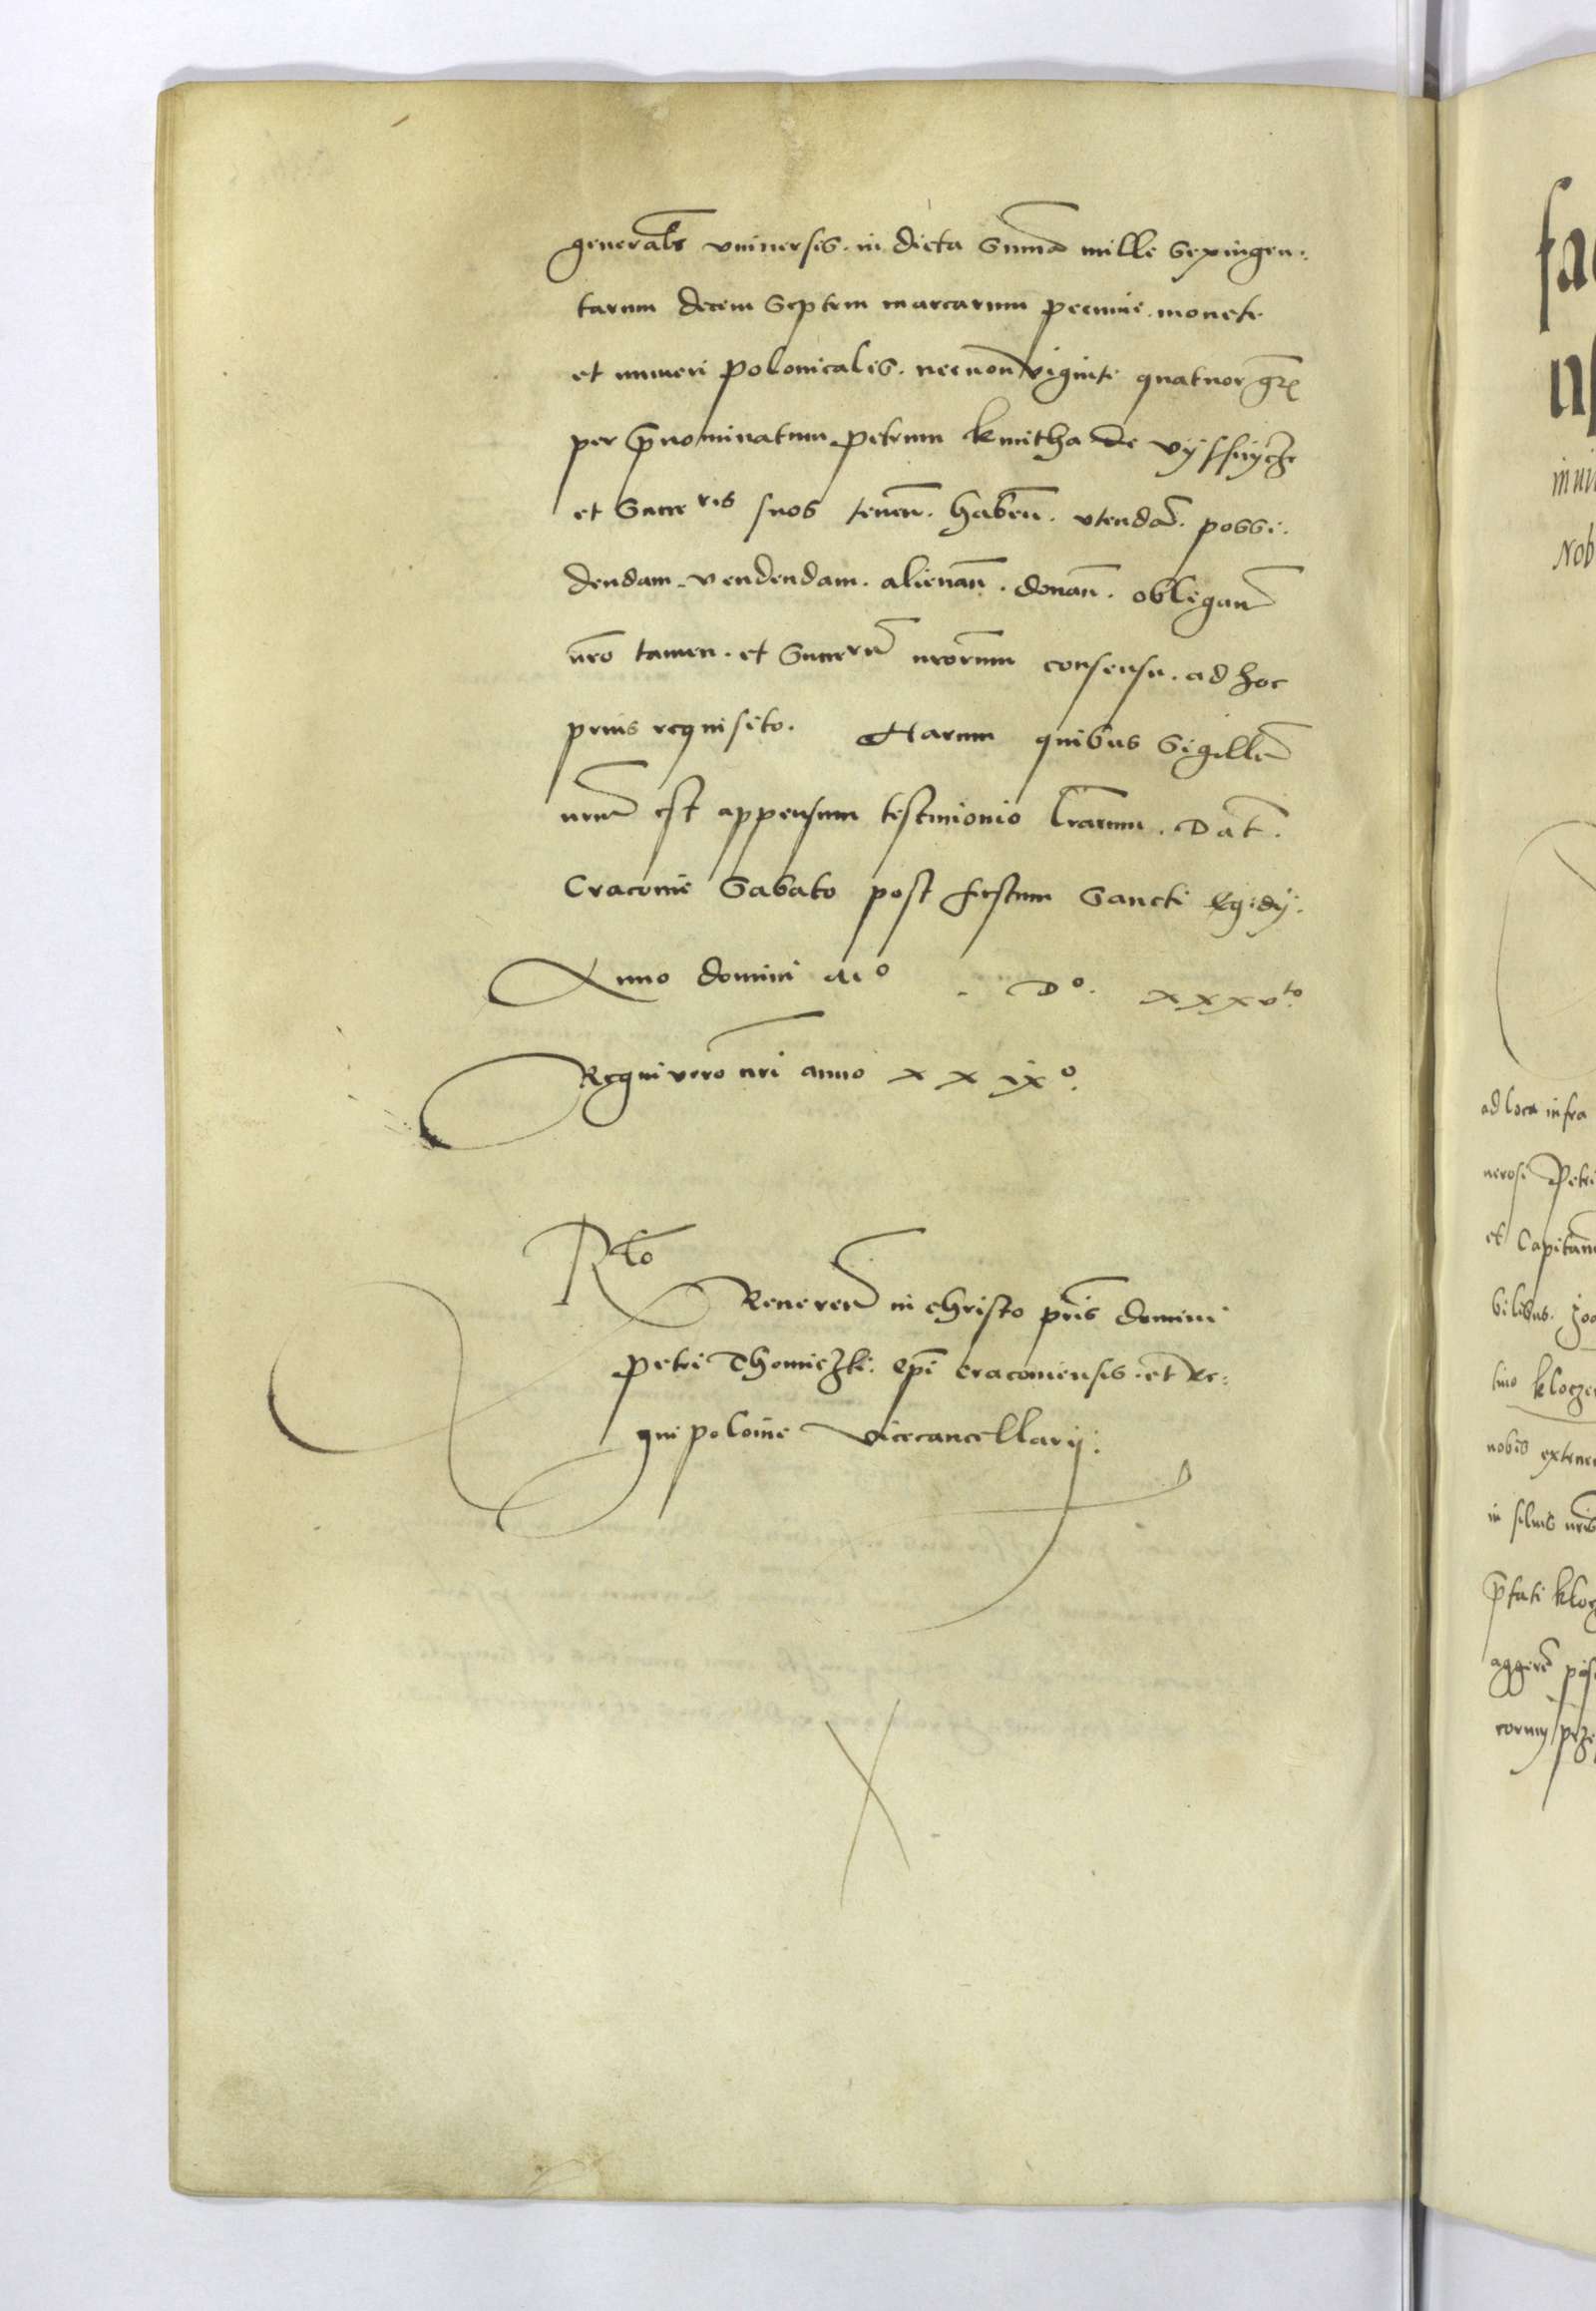 generalr vniuersis. in dicta Summa mille Sexingen:
tarum decem Septem marcarum pecunie. monete
et numeri polonicalis. necnon viginti quatuor gr
per prenominatum petrum kmitha de vÿssnycze
et Succres suos tenen. haben. vtendam. possi:
dendam. vendendam. alienan. donan. obligan
nro tamen. et Succrum nrorum consensu. ad hoc
prius requisito. Harum quibus Sigillum
nrum est appensum testimonio lrarum. Dat.
Cracouie Sabato post festum Sancti Egidÿ.
Anno domini Mo. Do. xxxvto.
Regni vero nri anno xxixo.
Rlo
Reueren in christo pris domini
petri Thomiczki. epi cracouiensis. et Re:
gni polonie vicecancellarij:
ad loca infra
nerosi Petri
et Capitan
bilibus.
tino
nobis
in siluis nris
prfati